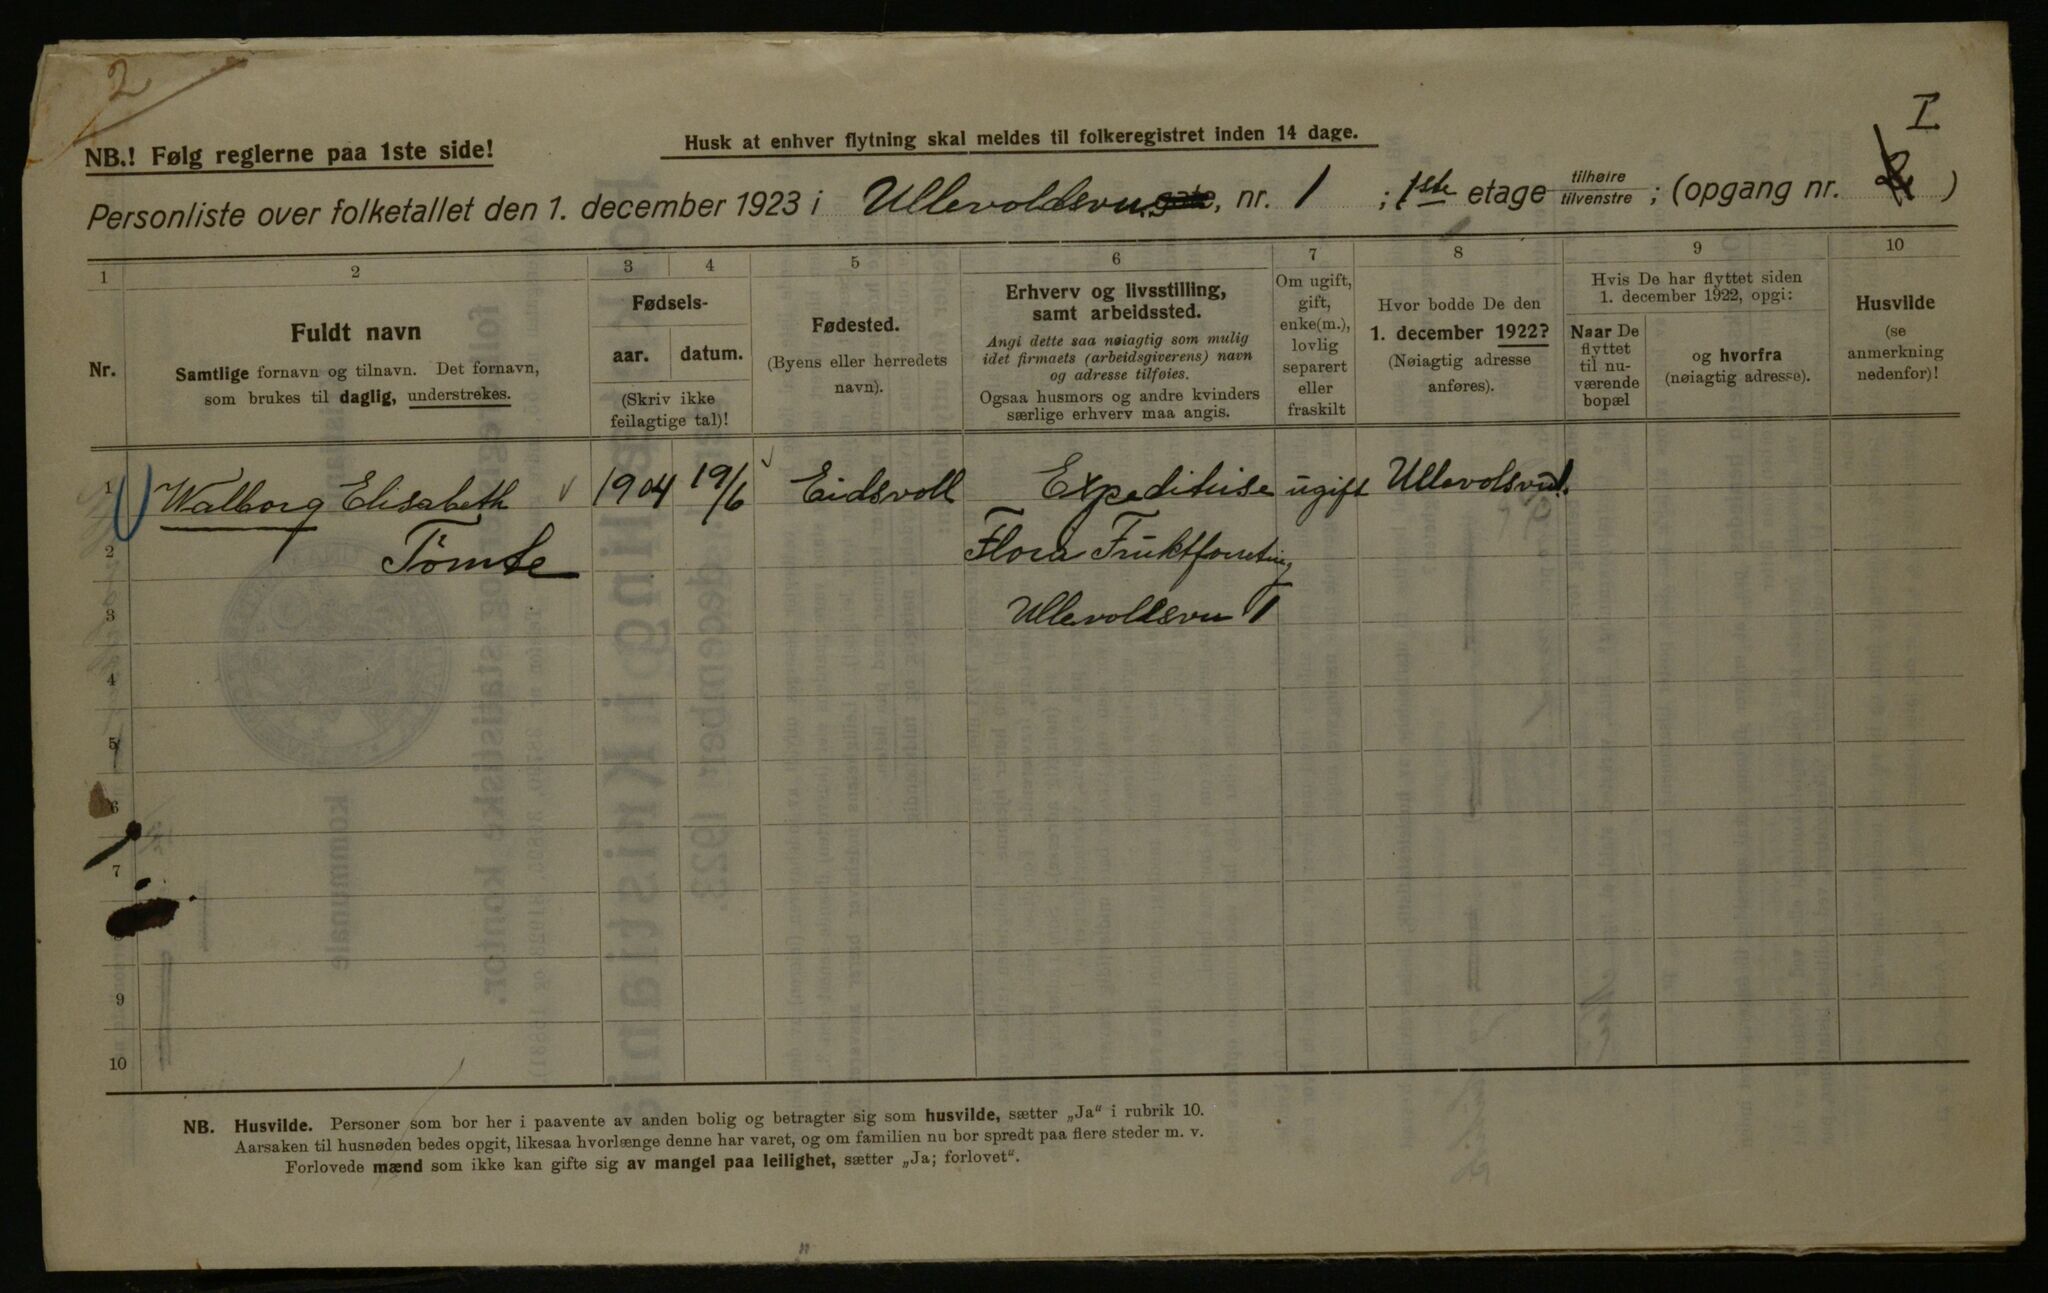 2
I
NB.! Følg reglerne paa 1ste side!
Husk at enhver flytning skal meldes til folkeregistret inden 14 dage.
Personliste over folketallet den 1. december 1923 i Ullevoldsvn. gate, nr. 1 ; 1ste etage tilhøire/tilvenstre ; (opgang nr. )
1 2 3 4 5 6 7 8 9 10
Nr.
Fuldt navn
Samtlige fornavn og tilnavn. Det fornavn,
som brukes til daglig, understrekes.
Fødsels-
aar. datum.
(Skriv ikke
feilagtige tal)!
Fødested.
(Byens eller herredets
navn).
Erhverv og livsstilling,
samt arbeidssted.
Angi dette saa nøiagtig som mulig
idet firmaets (arbeidsgiverens) navn
og adresse tilføies.
Ogsaa husmors og andre kvinders
særlige erhverv maa angis.
Om ugift,
gift,
enke(m.),
lovlig
separert
eller
fraskilt
Hvor bodde De den
1. december 1922?
(Nøiagtig adresse
anføres).
Hvis De har flyttet siden
1. december 1922, opgi:
Naar De
flyttet
til nu-
værende
bopæl
og hvorfra
(nøiagtig adresse).
Husvilde
(se
anmerkning
nedenfor)!
1 Walborg Elisabeth 1904 19/6 Eidsvoll Expeditrise ugift Ullevolsvn 1.
2 Tömte Flora Fruktforretning
3 Ullevoldsvn 1
4
5
6
7
9
10
NB. Husvilde. Personer som bor her i paavente av anden bolig og betragter sig som husvilde, sætter „Ja" i rubrik 10.
Aarsaken til husnøden bedes opgit, likesaa hvorlænge denne har varet, og om familien nu bor spredt paa flere steder m. v.
Forlovede mænd som ikke kan gifte sig av mangel paa leilighet, sætter „Ja; forlovet".